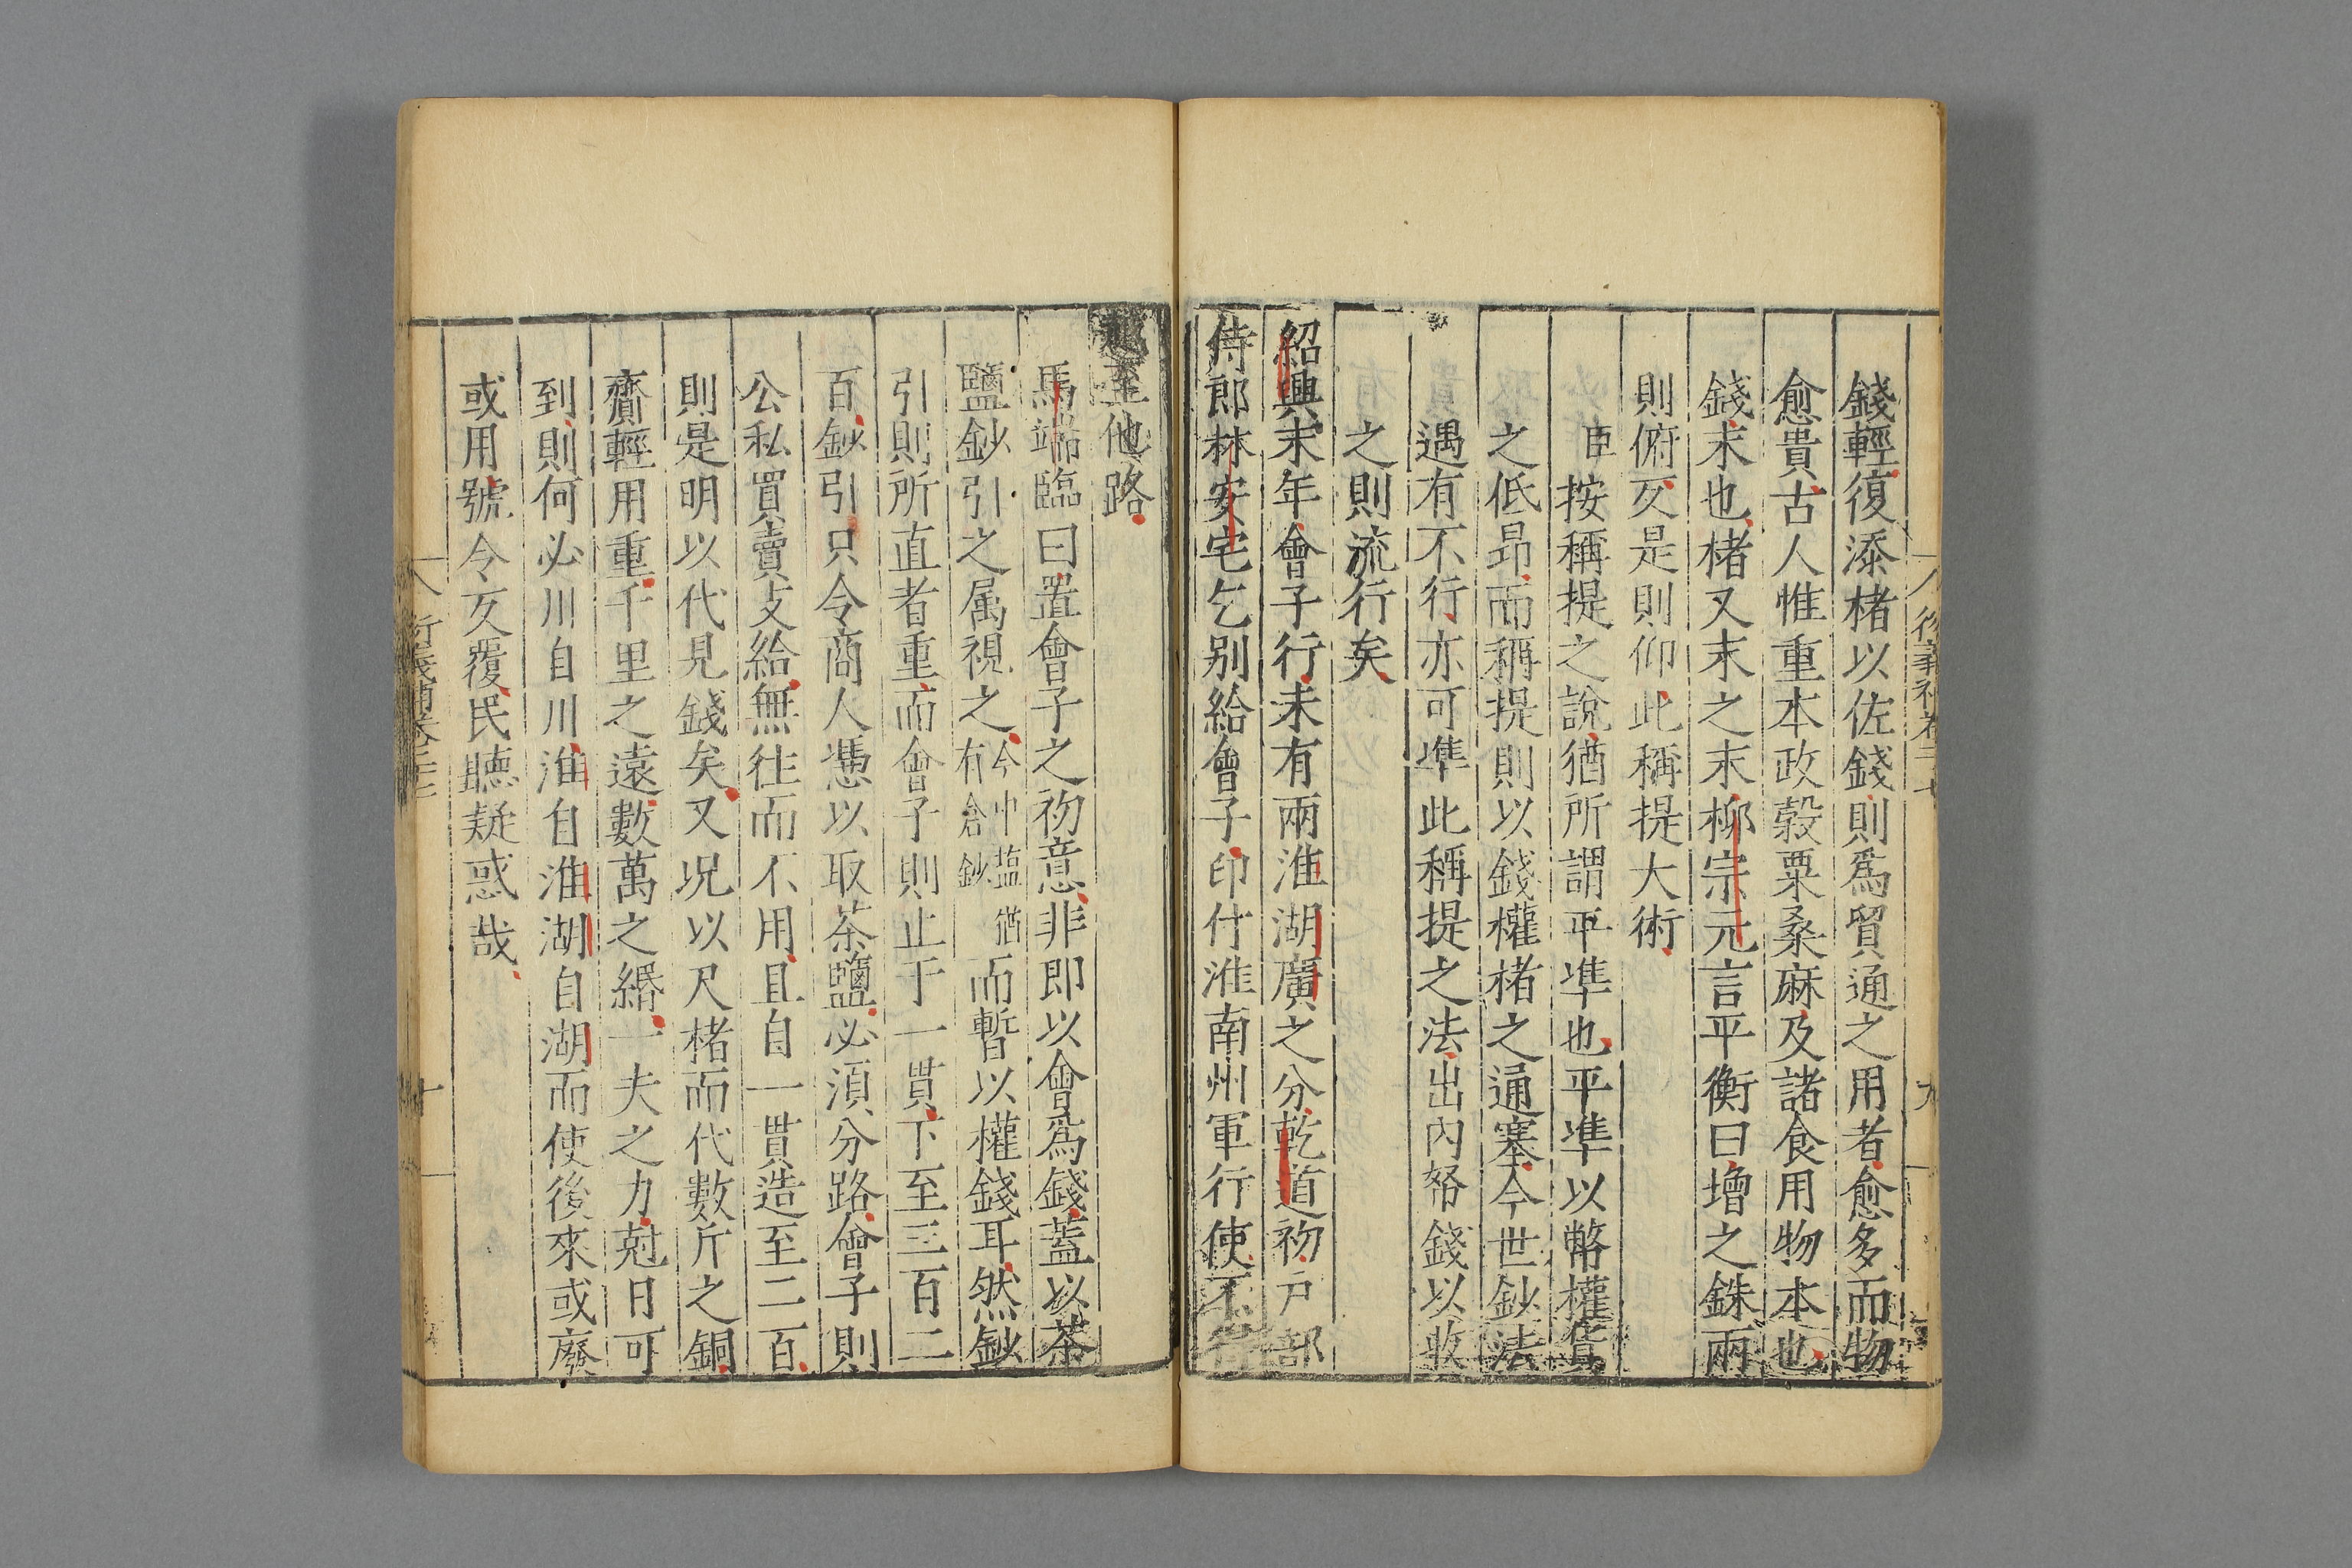 錢輕復添楮以佐錢則爲貿通之用者愈多而物
愈貴古人惟重本政榖粟桑麻及諸食用物本也
錢末也楮又末之末柳宗元言平衡曰增之銖兩
則俯反是則仰此稱提大術
臣按稱提之說猶所謂平準也平準以幣權貨
之低昂而稱提則以錢權楮之通塞今世鈔法
遇有不行亦可準此稱提之法出內帑錢以收
之則流行矣
紹興末年會子行未有兩淮湖廣之分乾道初户部
侍郎林安宅乞别給會子印付淮南州軍行使不
至他路
馬端臨曰置會子之初意非即以會爲錢蓋以茶
鹽鈔引之属視之今中盐猶有倉鈔而暫以權錢耳然鈔
引則所直者重而會子則止于一貫下至三百二
百鈔引只令商人憑以取茶鹽必須分路會子則
公私買賣支給無往而不用且自一貫造至二百
則是明以代見錢矣又况以尺楮而代數斤之銅
齎輕用重千里之遠數萬之緡一夫之力尅日可
到則何必川自川淮自淮湖自湖而使後來或廢
或用號令反覆民聽疑惑哉
十